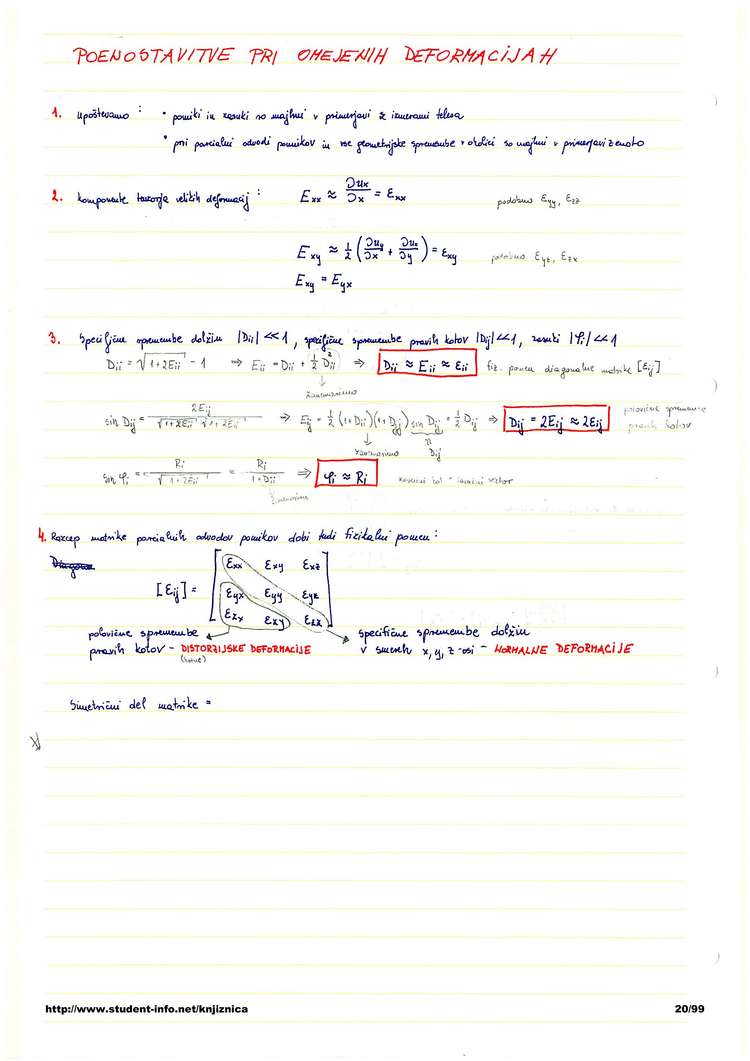 POENOSTAVITVE PRI OMEJENIH DEFORMACIJAH
1. Upoštevamo : • pomiki in zasuki so majhni v primerjavi z izmerami telesa
• pri parcialni odvodi pomikov in vse geometrijske spremembe v okolici so majhni v primerjavi z enoto
2. komponente tenzorja velikih deformacij : Exx ≈ ∂ux/∂x = εxx podobno εyy, εzz
Exy ≈ 1/2 (∂uy/∂x + ∂ux/∂y) = εxy podobno εyz, εzx
Exy = Eyx
3. Specifične spremembe dolžin |Dii| ≪ 1, specifične spremembe pravih kotov |Dij| ≪ 1, zasuki |φi| ≪ 1
Dii = √(1+2Eii) - 1 ⇒ Eii = Dii + 1/2 Dii² ⇒ Dii ≈ Eii ≈ εii fiz. pomen diagonalne matrike [εij]
↓
Zanemarimo
sin Dij = 2Eij / (√(1+2Eii) √(1+2Eii)) ⇒ Eij = 1/2 (1+Dii)(1+Djj) sin Dij = 1/2 Dij ⇒ Dij = 2Eij ≈ 2εij polovične spremembe
pravih kotov
↓
zanemarimo Dij
sin φi = Ri / √(1+2Eii) = Ri / (1+Dii) ⇒ φi ≈ Ri
Zanemarimo
4. Razcep matrike parcialnih odvodov pomikov dobi tudi fizikalni pomen :
Diagona
[εij] = [ εxx εxy εxz
εyx εyy εyz
εzx εxy εzz ]
polovične spremembe
pravih kotov - DISTORZIJSKE DEFORMACIJE
specifične spremembe dolžin
v smereh x, y, z -osi - NORMALNE DEFORMACIJE
Simetrični del matrike =
http://www.student-info.net/knjiznica 20/99